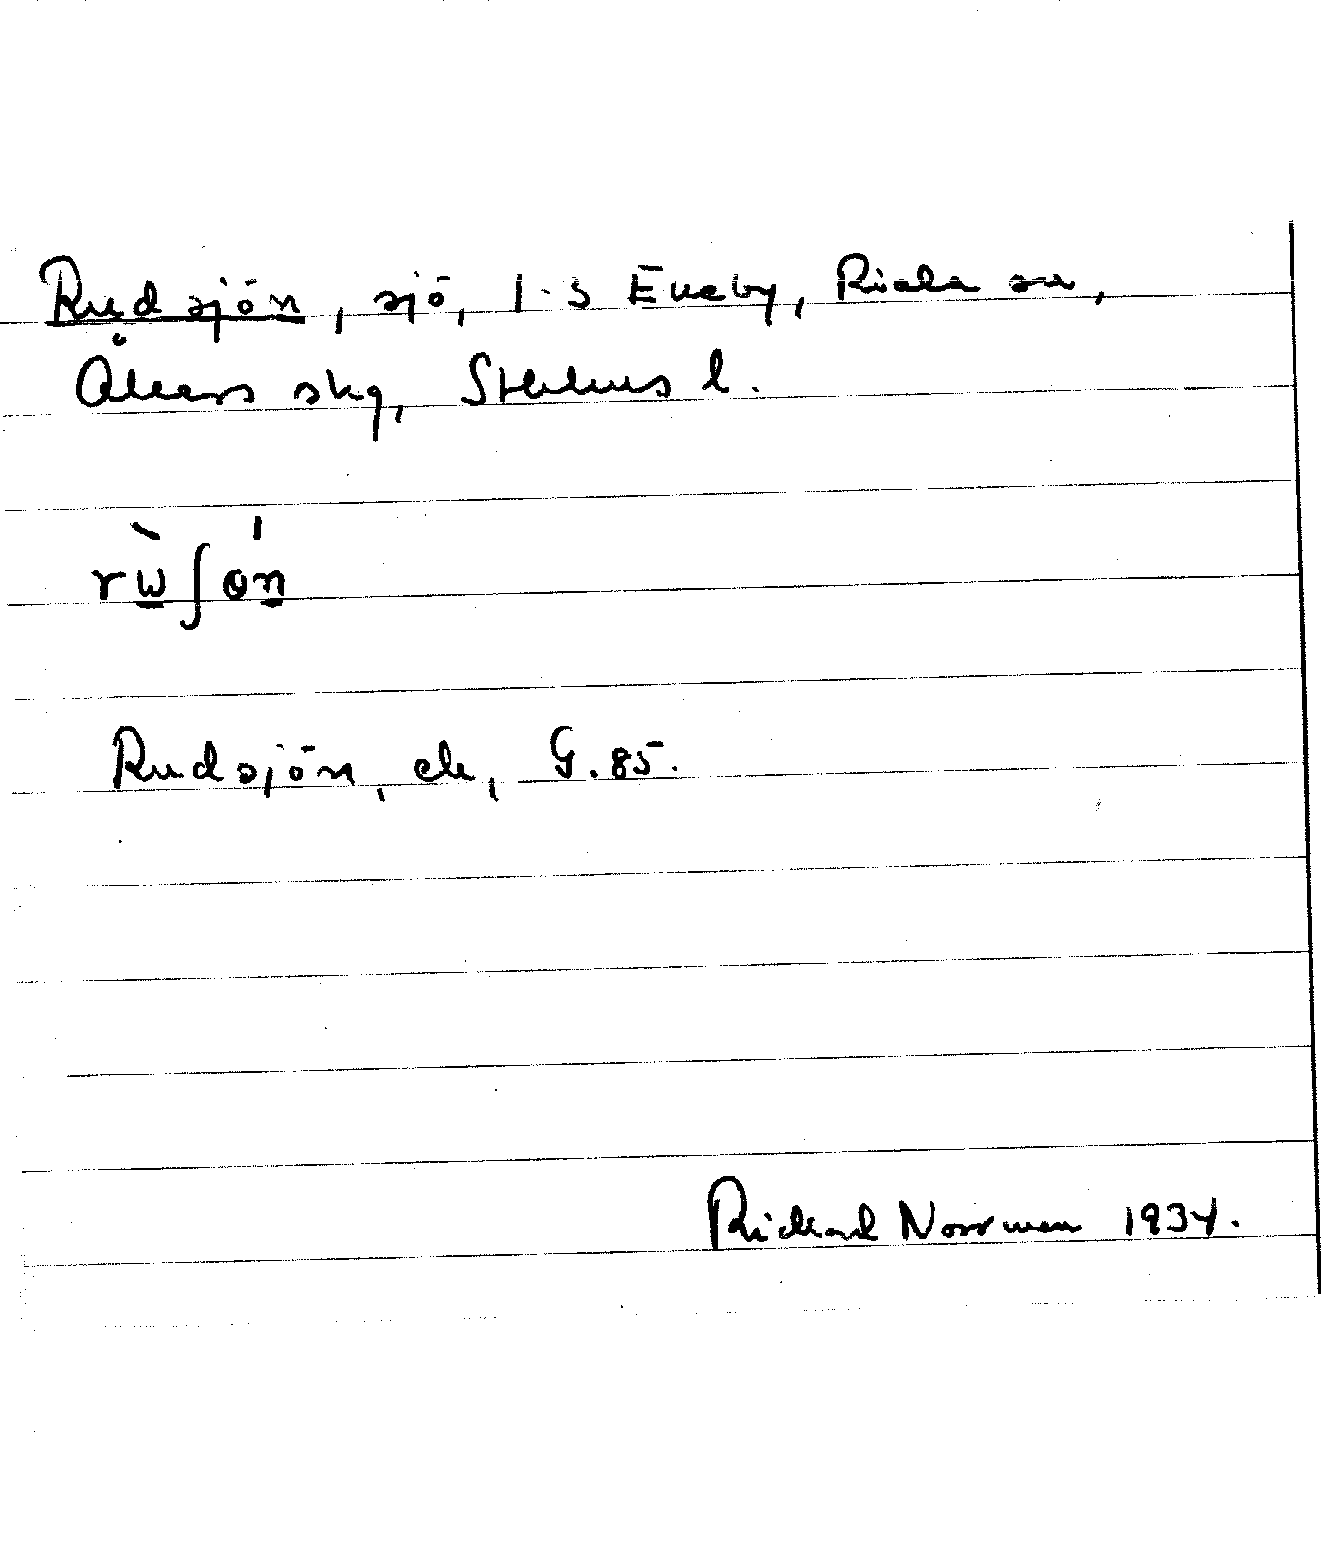 Rudsjön, sjö, 1-3 Eneby, Riala sn,
Åkers skg, Sthlms l.
rẁ̲ʃɵn̲̍
Rudsjön, ek, G.85.
Richard Norrman 1934.